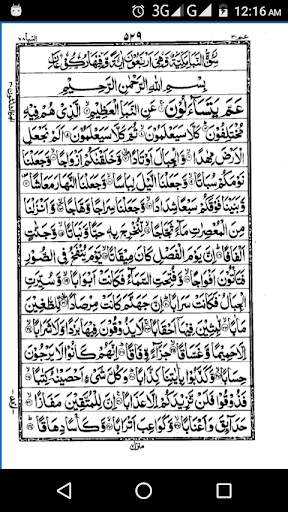 3G G 12:16 AM
عم ٣٠ ٥٢٩ النبا ٧٨
سُوْرَةُ النَّبَاِ مَكِّيَّةٌ وَّهِيَ اَرْبَعُوْنَ اٰيَةً وَّفِيْهَا رُكُوْعَانِ
بِسْمِ اللّٰهِ الرَّحْمٰنِ الرَّحِيْمِ
عَمَّ يَتَسَآءَلُوْنَ۝ عَنِ النَّبَاِ الْعَظِيْمِ۝ الَّذِيْ هُمْ فِيْهِ
مُخْتَلِفُوْنَ۝ كَلَّا سَيَعْلَمُوْنَ۝ ثُمَّ كَلَّا سَيَعْلَمُوْنَ۝ اَلَمْ نَجْعَلِ
الْاَرْضَ مِهٰدًا۝ وَّالْجِبَالَ اَوْتَادًا۝ وَّخَلَقْنٰكُمْ اَزْوَاجًا۝ وَّجَعَلْنَا
نَوْمَكُمْ سُبَاتًا۝ وَّجَعَلْنَا الَّيْلَ لِبَاسًا۝ وَّجَعَلْنَا النَّهَارَ مَعَاشًا۝
وَّبَنَيْنَا فَوْقَكُمْ سَبْعًا شِدَادًا۝ وَّجَعَلْنَا سِرَاجًا وَّهَّاجًا۝ وَّاَنْزَلْنَا
مِنَ الْمُعْصِرٰتِ مَآءً ثَجَّاجًا۝ لِّنُخْرِجَ بِهٖ حَبًّا وَّنَبَاتًا۝ وَّجَنّٰتٍ
اَلْفَافًا۝ اِنَّ يَوْمَ الْفَصْلِ كَانَ مِيْقَاتًا۝ يَّوْمَ يُنْفَخُ فِي الصُّوْرِ
فَتَاْتُوْنَ اَفْوَاجًا۝ وَّفُتِحَتِ السَّمَآءُ فَكَانَتْ اَبْوَابًا۝ وَّسُيِّرَتِ
الْجِبَالُ فَكَانَتْ سَرَابًا۝ اِنَّ جَهَنَّمَ كَانَتْ مِرْصَادًا۝ لِّلطَّاغِيْنَ
مَاٰبًا۝ لّٰبِثِيْنَ فِيْهَآ اَحْقَابًا۝ لَا يَذُوْقُوْنَ فِيْهَا بَرْدًا وَّلَا شَرَابًا۝
اِلَّا حَمِيْمًا وَّغَسَّاقًا۝ جَزَآءً وِّفَاقًا۝ اِنَّهُمْ كَانُوْا لَا يَرْجُوْنَ
حِسَابًا۝ وَّكَذَّبُوْا بِاٰيٰتِنَا كِذَّابًا۝ وَكُلَّ شَيْءٍ اَحْصَيْنٰهُ كِتٰبًا۝
فَذُوْقُوْا فَلَنْ نَّزِيْدَكُمْ اِلَّا عَذَابًا۝ اِنَّ لِلْمُتَّقِيْنَ مَفَازًا۝
حَدَآئِقَ وَاَعْنَابًا۝ وَّكَوَاعِبَ اَتْرَابًا۝ وَّكَاْسًا دِهَاقًا۝